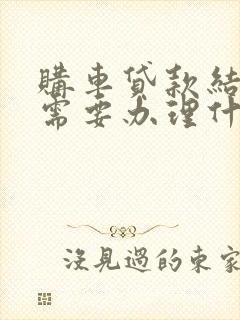 購車貸款結
需要办理什
沒見過的東家